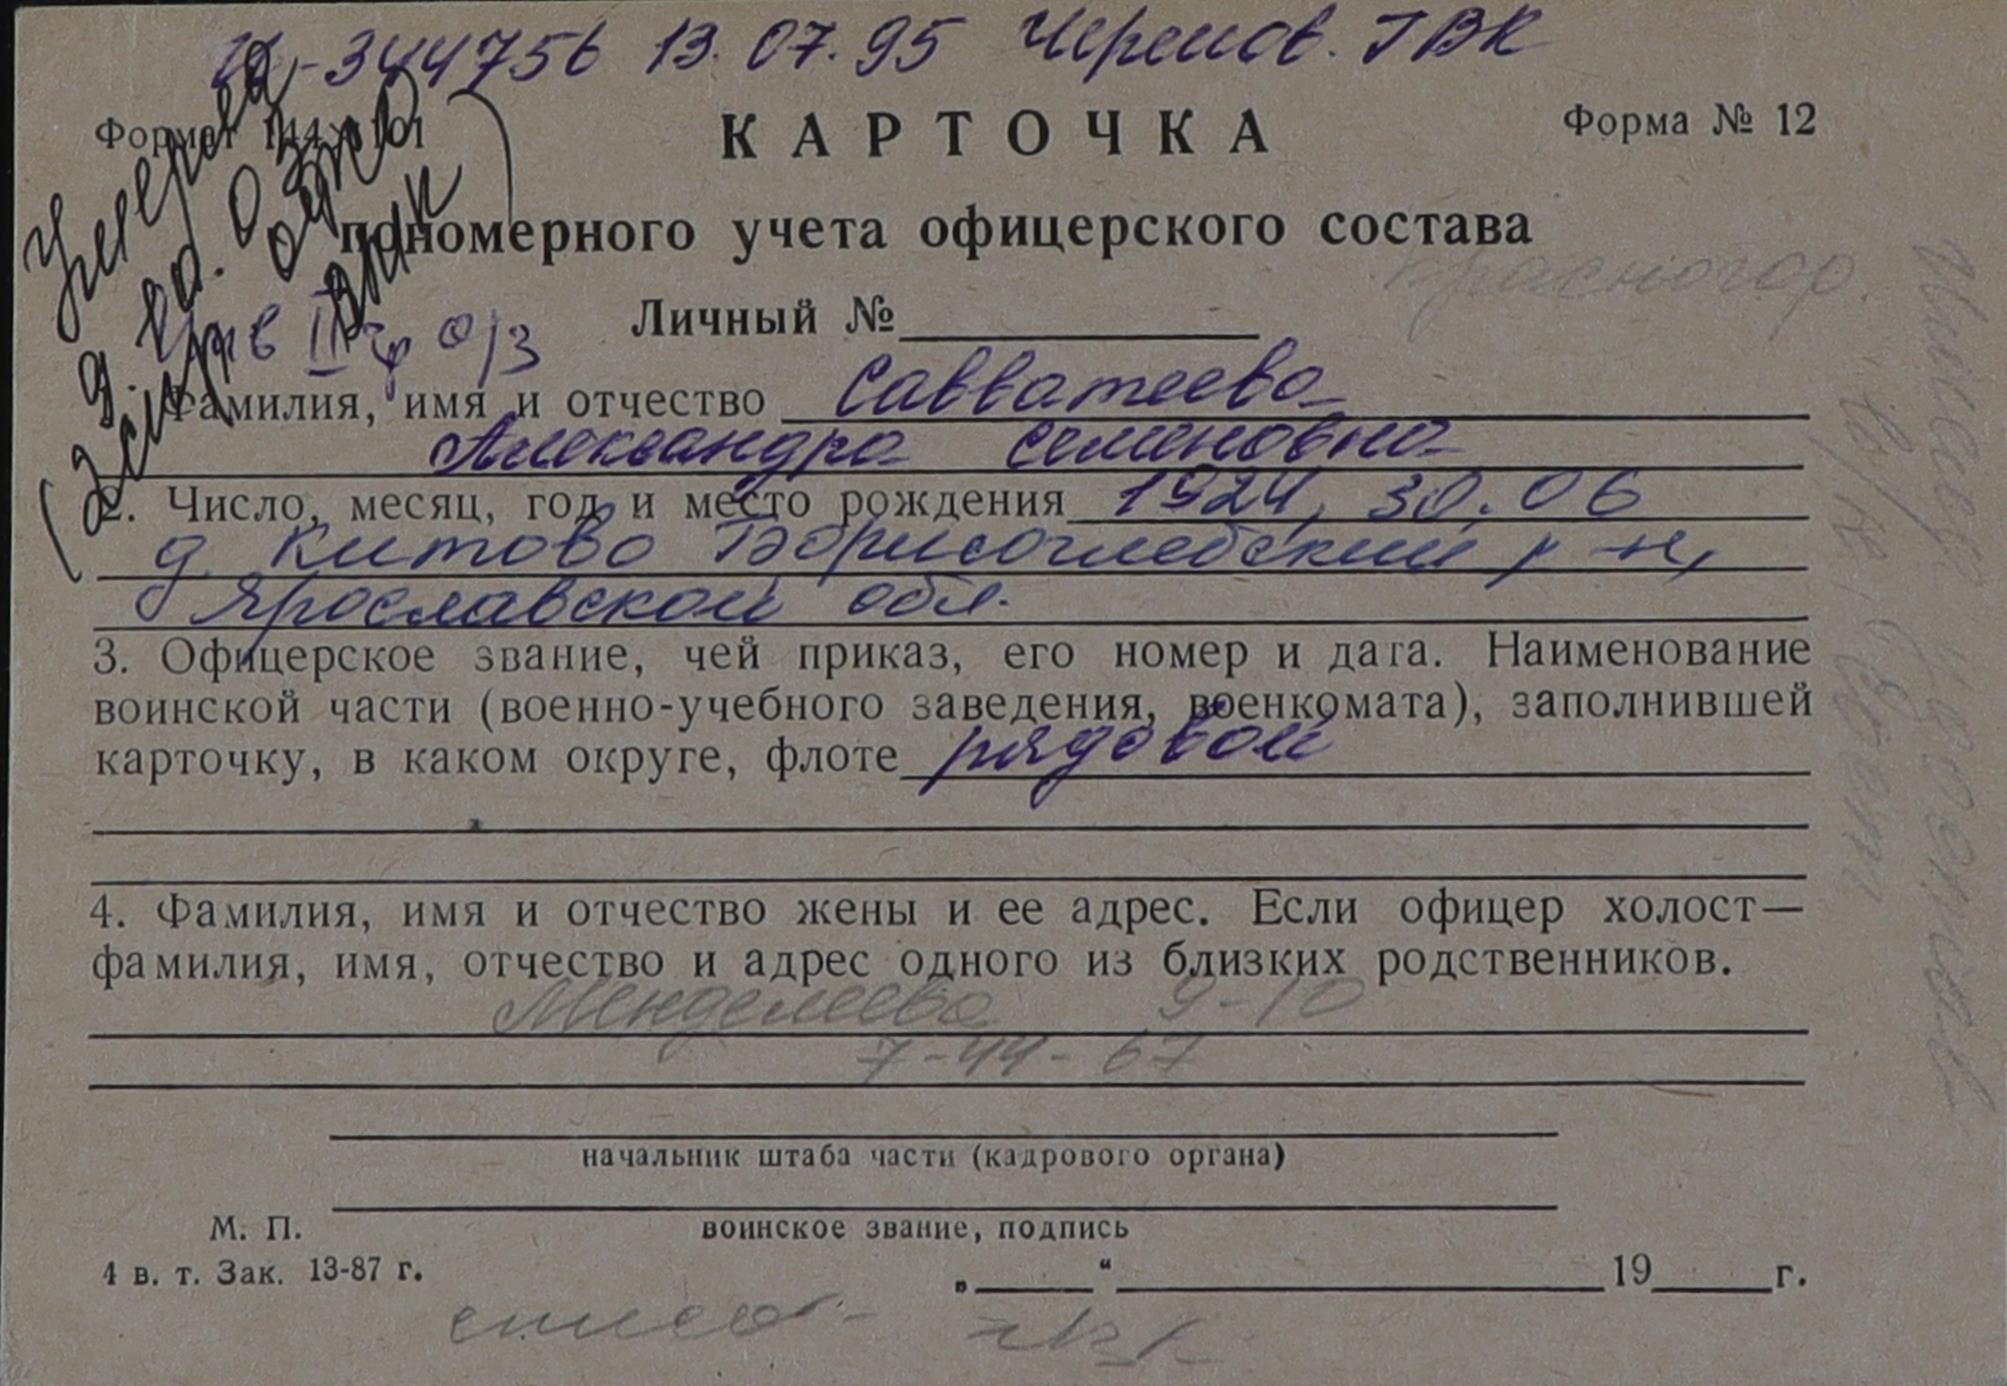 -344756 13.07.95 Черепов. ГВК
Формат 144×101
КАРТОЧКА
Форма № 12
Умерла
пономерного учета офицерского состава
Красногор.
Личный №
1. Фамилия, имя и отчество Савватеева
Александра Семеновна
2. Число, месяц, год и место рождения 1924, 30.06
д. Китово Борисоглебский р-н,
Ярославской обл.
3. Офицерское звание, чей приказ, его номер и дата. Наименование
воинской части (военно-учебного заведения, военкомата), заполнившей
карточку, в каком округе, флоте рядовой
4. Фамилия, имя и отчество жены и ее адрес. Если офицер холост—
фамилия, имя, отчество и адрес одного из близких родственников.
Менделеева 9-10
7-44-67
начальник штаба части (кадрового органа)
воинское звание, подпись
М. П.
4 в. т. Зак. 13-87 г.
„ “ 19 г.